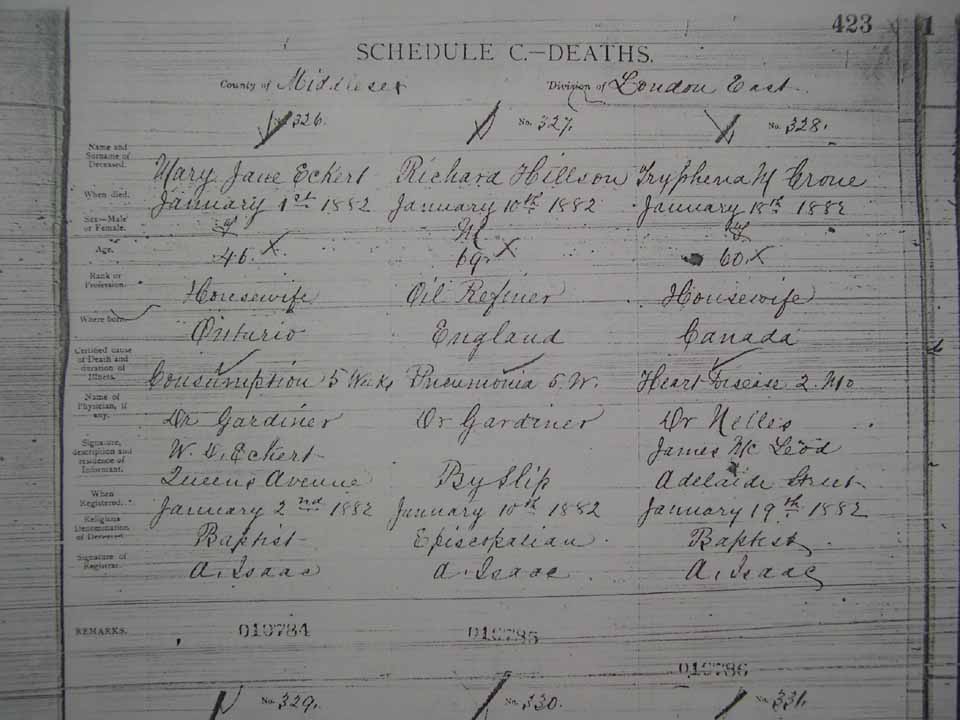 423 1
SCHEDULE C.—DEATHS.
County of Middlesex Division of London East
No. 326. No. 327. No. 328.
Name and Surname of Deceased. Mary Jane Eckert Richard Hillson Tryphena M Crone
When died. January 1st 1882 January 10th 1882 January 18th 1882
Sex—Male or Female. F M F
Age. 46 X 69 X 60 X
Rank or Profession. Housewife Oil Refiner Housewife
Where born. Ontario England Canada
Certified cause of Death and duration of Illness. Consumption 5 Weeks Pneumonia 5 W. Heart Disease 2 Mo
Name of Physician, if any. Dr Gardiner Dr Gardiner Dr Nelles
Signature, description and residence of Informant. W. D. Eckert James Mc Leod
Queens Avenue By Slip Adelaide Street
When Registered. January 2nd 1882 January 10th 1882 January 19th 1882
Religious Denomination of Deceased. Baptist Episcopalian Baptist
Signature of Registrar. A. Isaac A. Isaac A. Isaac
REMARKS. 010784 010785
010786
No. 329. No. 330. No. 331.